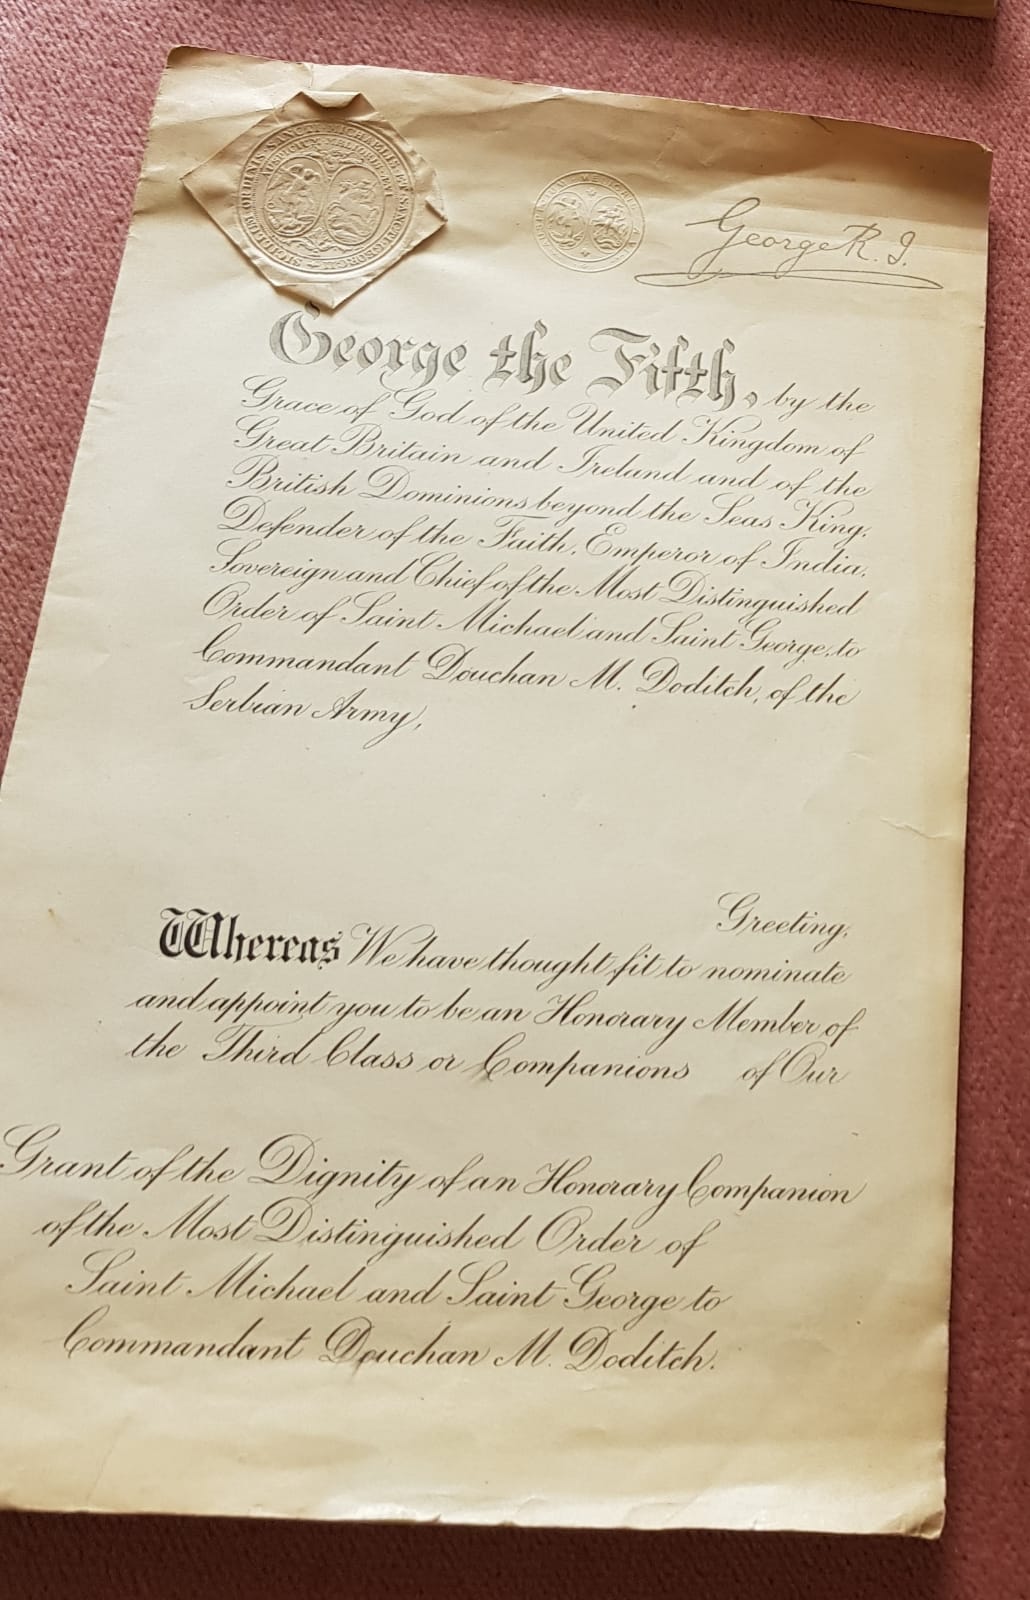 SIGILLUM ORDINIS SANCTI MICHAELIS ET SANCTI GEORGII
AUSPICIUM MELIORIS ÆVI
George R. I.
George the Fifth, by the
Grace of God of the United Kingdom of
Great Britain and Ireland and of the
British Dominions beyond the Seas King,
Defender of the Faith, Emperor of India,
Sovereign and Chief of the Most Distinguished
Order of Saint Michael and Saint George, to
Commandant Douchan M. Doditch, of the
Serbian Army,
Greeting,
Whereas We have thought fit to nominate
and appoint you to be an Honorary Member of
the Third Class or Companions of Our
Grant of the Dignity of an Honorary Companion
of the Most Distinguished Order of
Saint Michael and Saint George to
Commandant Douchan M. Doditch.